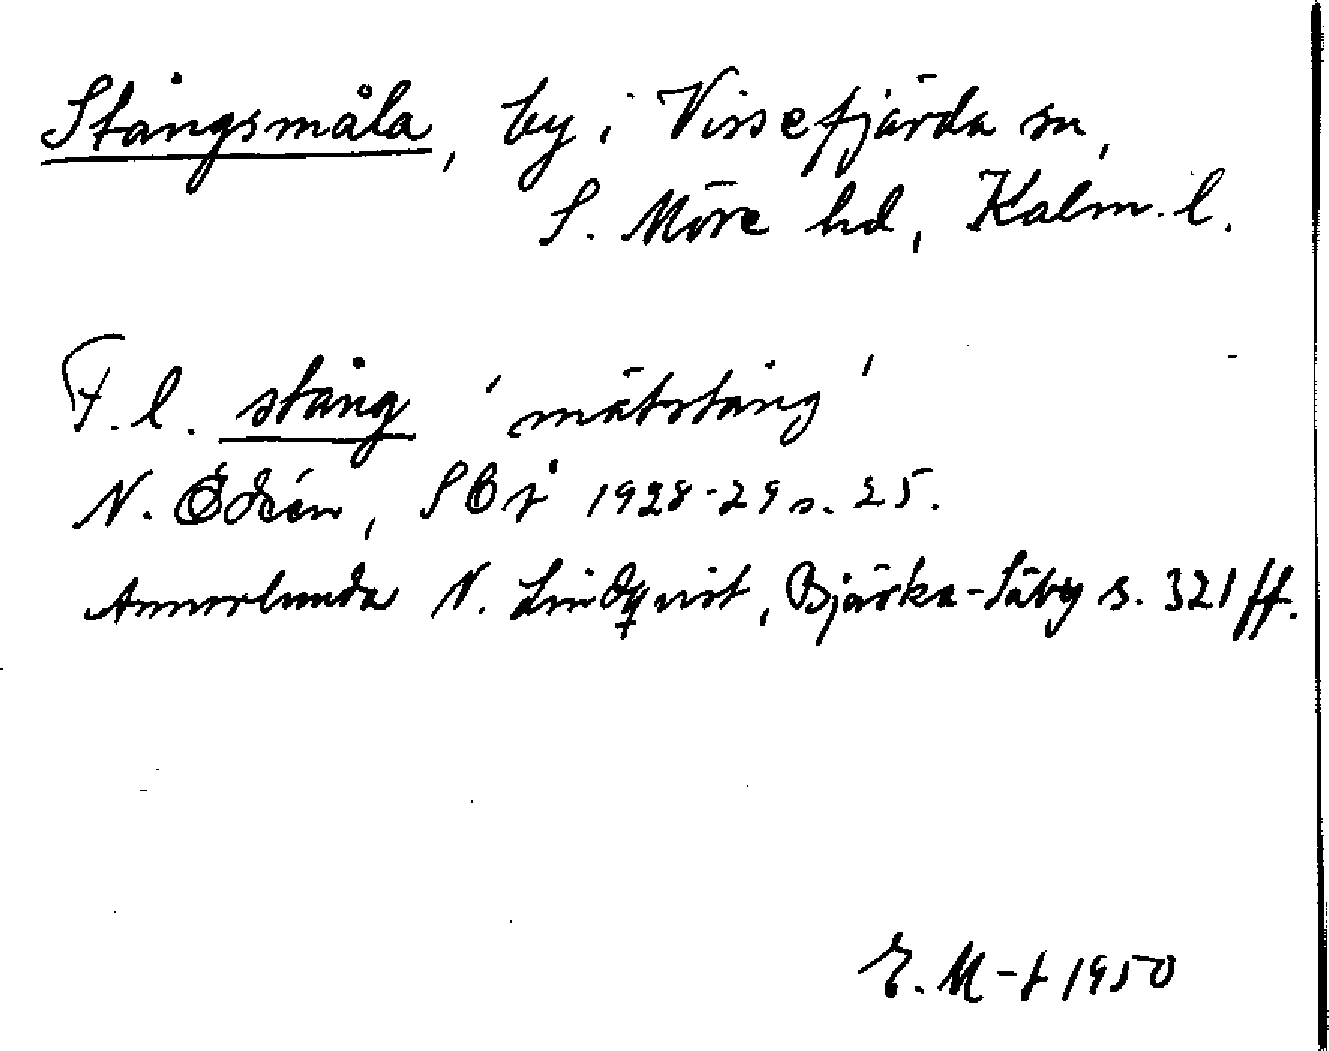 Stångsmåla, by i Vissefjärda sn,
S. Möre hd, Kalm. l.
F. l. stång 'mätstång'
N. Ödéen, SOÅ 1928-29 s. 25.
Annorlunda N. Lindqvist, Bjärka-Säby s. 321 ff.
E. M-t 1950